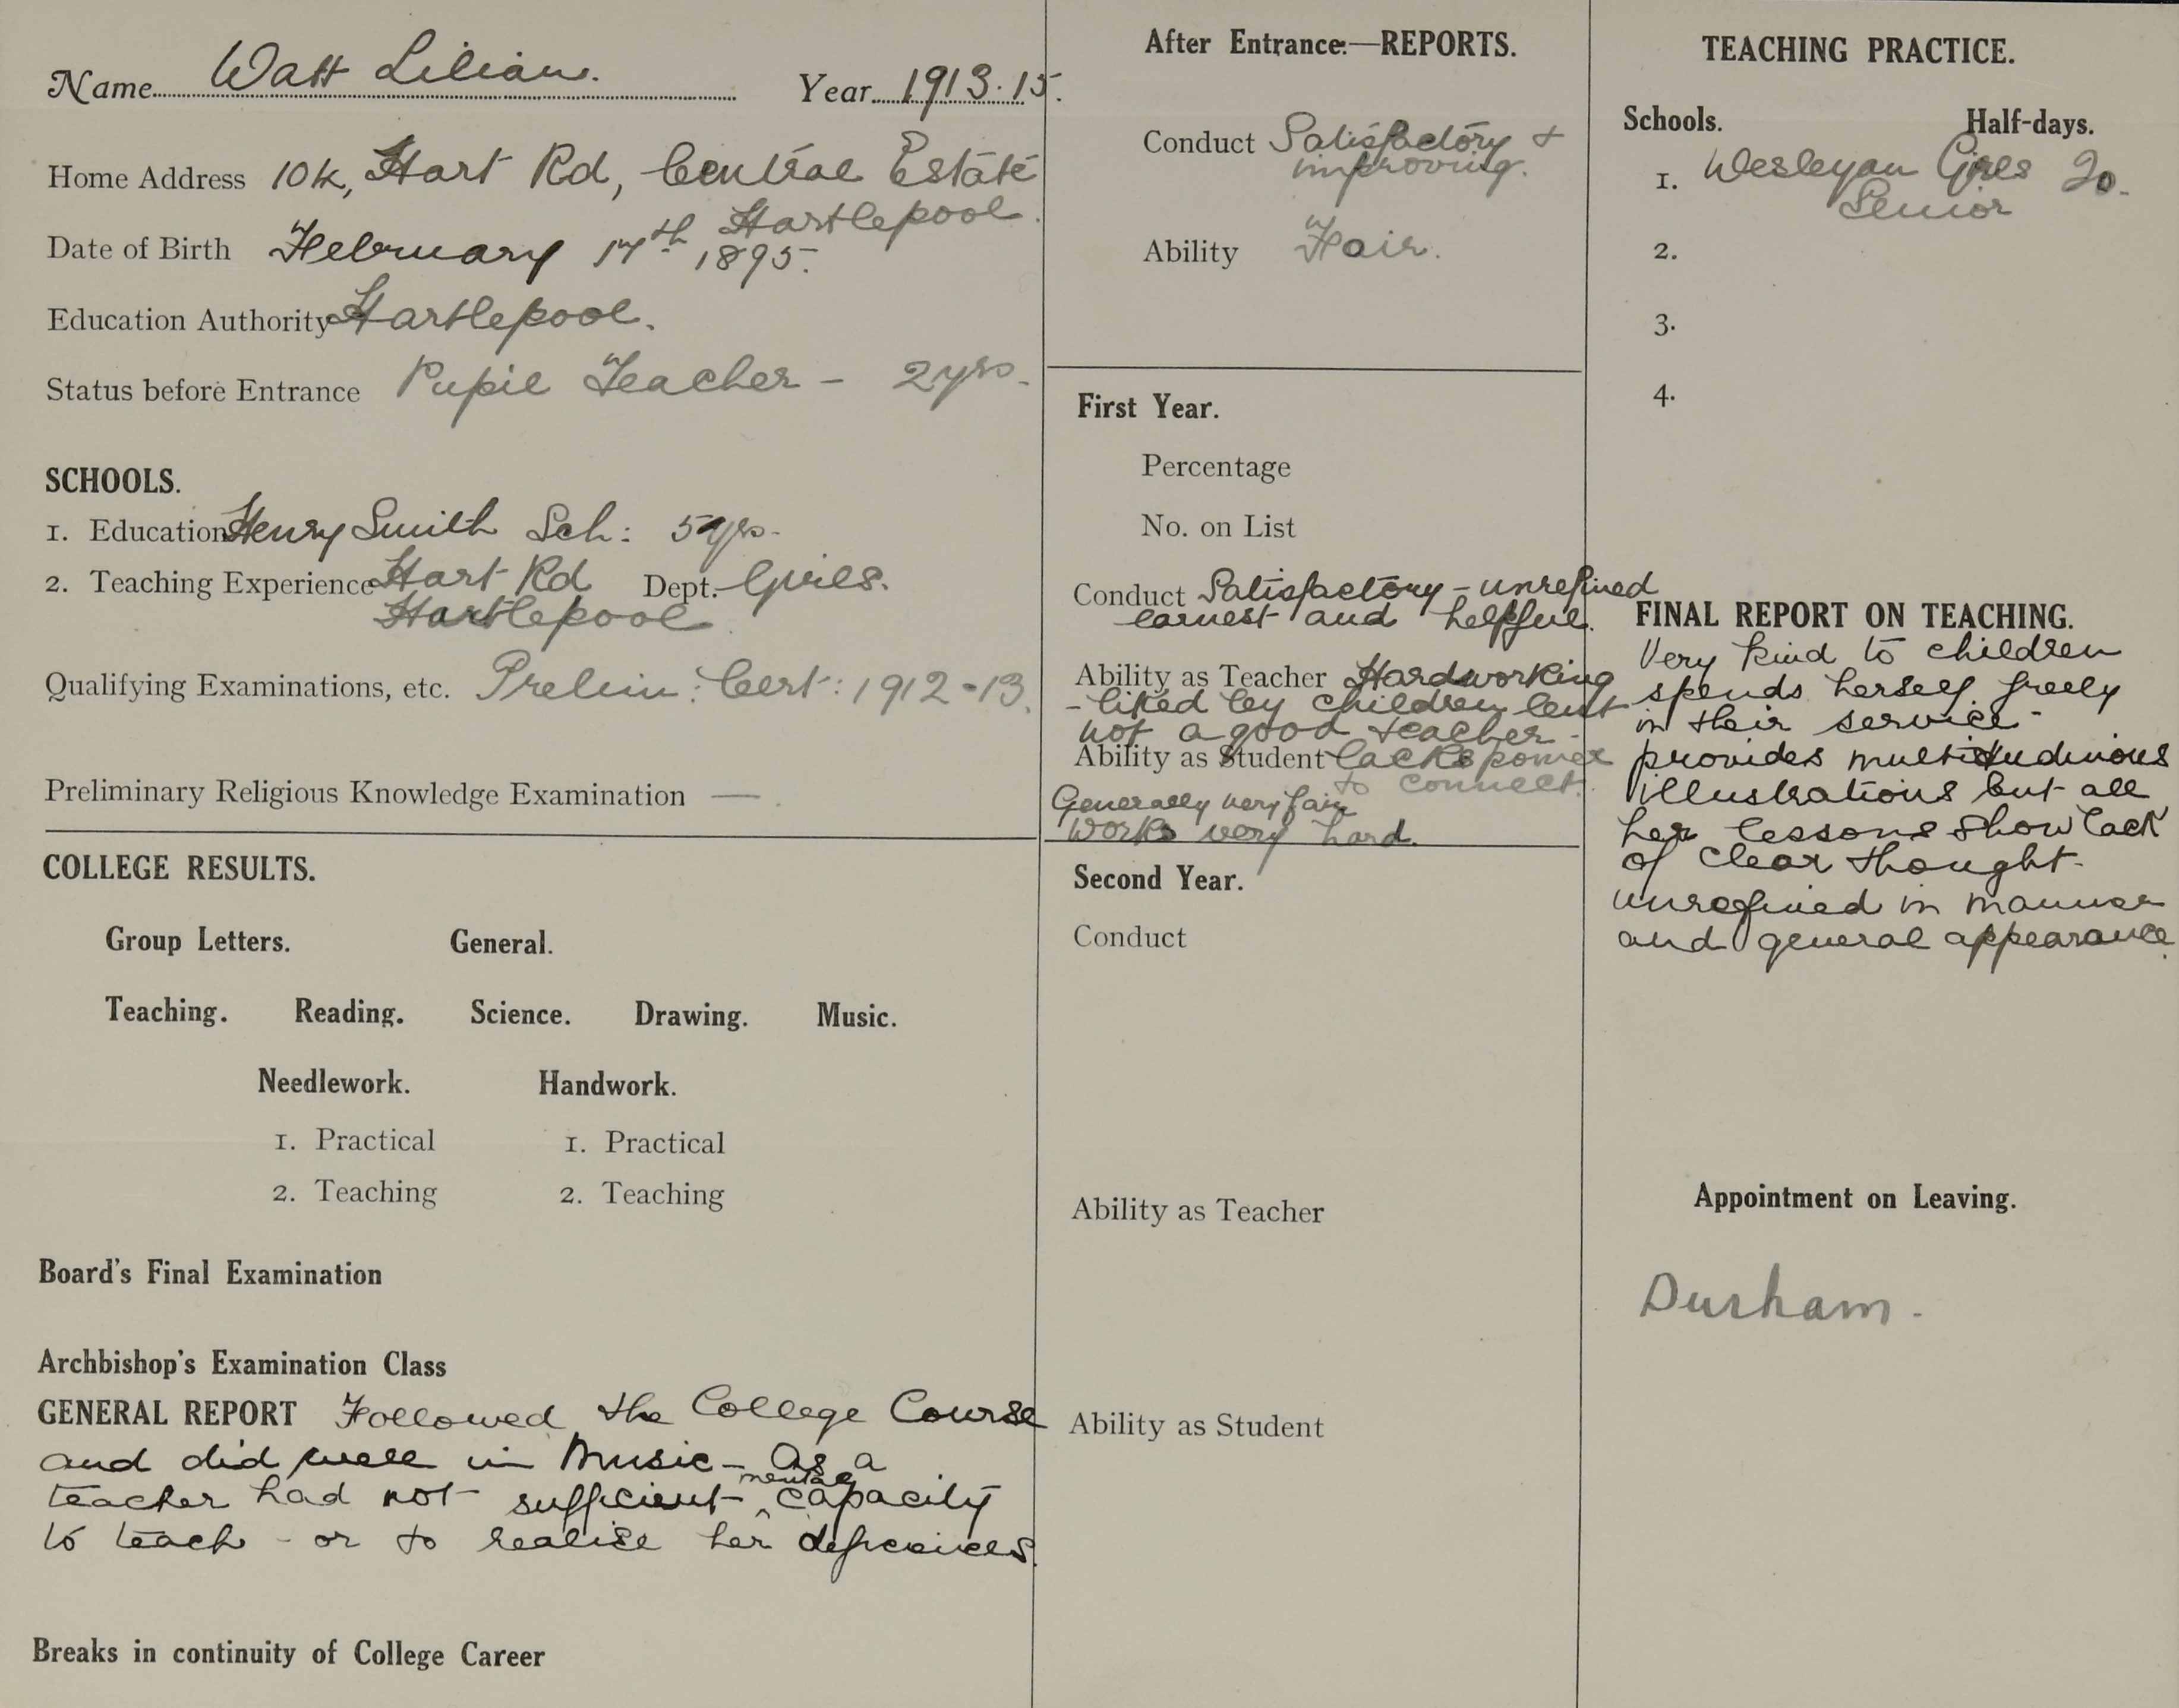 Name Watt Lilian. Year 1913.15.
Home Address 10k, Hart Rd, Central Estate
Hartlepool.
Date of Birth February 17th 1895.
Education Authority Hartlepool.
Status before Entrance Pupil Teacher - 2 yrs.
SCHOOLS.
1. Education Henry Smith Sch: 5 yrs.
2. Teaching Experience Hart Rd Dept. Girls.
Hartlepool
Qualifying Examinations, etc. Prelim: Cert: 1912-13.
Preliminary Religious Knowledge Examination —.
COLLEGE RESULTS.
Group Letters. General.
Teaching. Reading. Science. Drawing. Music.
Needlework. Handwork.
1. Practical 1. Practical
2. Teaching 2. Teaching
Board's Final Examination
Archbishop's Examination Class
GENERAL REPORT Followed the College Course
and did well in Music - As a
mental
teacher had not sufficient ^ capacity
to teach - or to realise her
Breaks in continuity of College Career
After Entrance:—REPORTS.
Conduct Satisfactory +
improving.
Ability Fair.
First Year.
Percentage
No. on List
Conduct Satisfactory - unrefined
earnest and helpful.
Ability as Teacher Hardworking
- liked by children but
not a good teacher -
Ability as Student lacks power
to connect.
Generally very fair
Works very hard.
Second Year.
Conduct
Ability as Teacher
Ability as Student
TEACHING PRACTICE.
Schools. Half-days.
1. Wesleyan Girls 20.
Senior
2.
3.
4.
FINAL REPORT ON TEACHING.
Very kind to children
spends herself freely
in their service -
provides multitudinous
illustrations but all
her lessons show lack
of clear thought.
unrefined in manner
and general appearance.
Appointment on Leaving.
Durham.